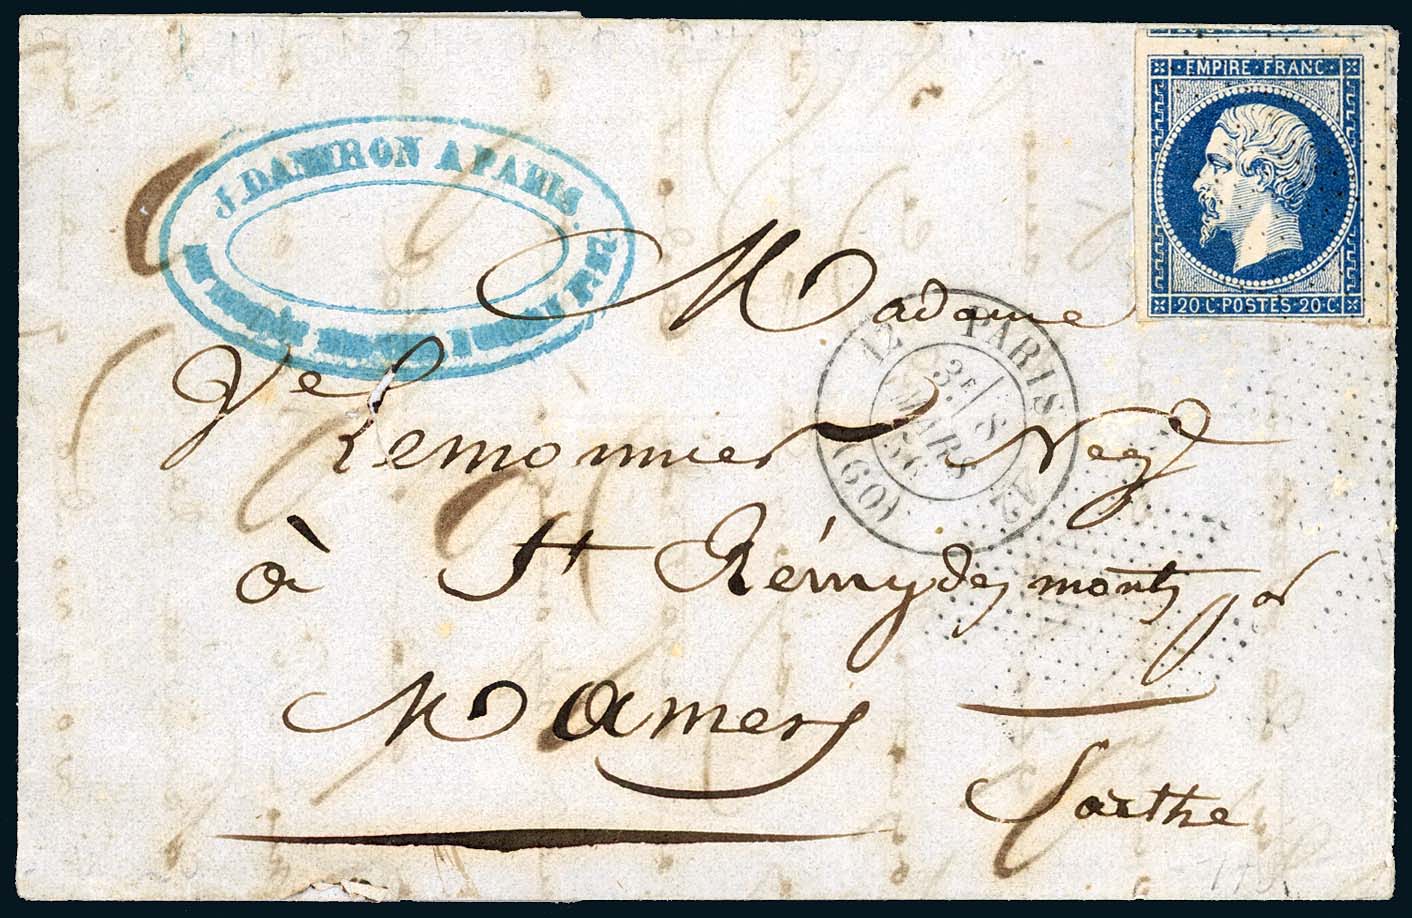 J. DAMERON A PARIS.
EMPIRE · FRANC ·
20 · C · POSTES · 20 · C
PARIS
12
3E
8
MARS
56
(60)
Madame
Ve Lemonnier Negt
à St Rémy des monts par
Mamers
Sarthe